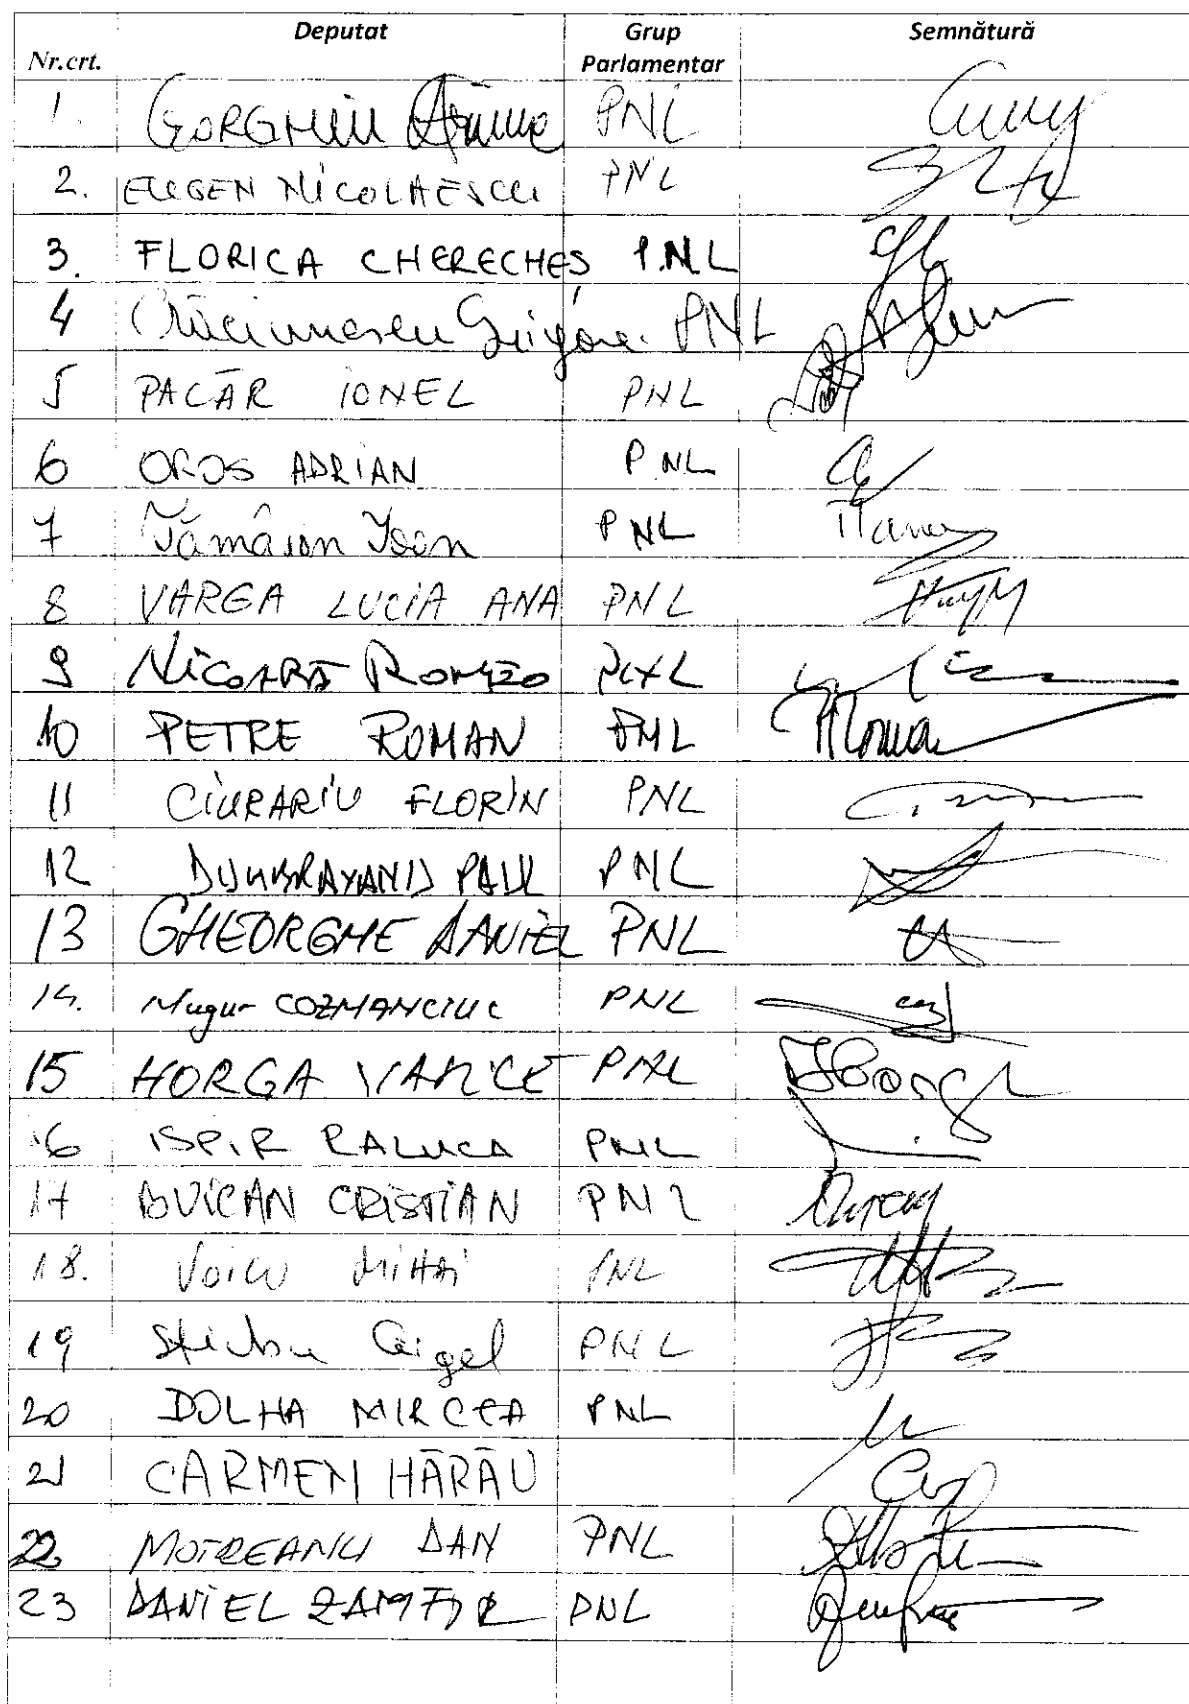 Nr.crt. Deputat Grup Parlamentar Semnătură
1. GORGHIU Alina PNL
2. EUGEN NICOLAESCU PNL
3. FLORICA CHERECHEȘ PNL
4 Crăciunescu Grigore PNL
5 PĂCĂR IONEL PNL
6 OROS ADRIAN PNL
7 Tămâian Ioan PNL
8 VARGA LUCIA ANA PNL
9 NICOARĂ ROMEO PNL
10 PETRE ROMAN PNL
11 CIURARIU FLORIN PNL
12 DUMBRAVANU PAUL PNL
13 GHEORGHE DANIEL PNL
14. Mugur COZMANCIUC PNL
15 HORGA VASILE PNL
16 ISPIR RALUCA PNL
17 BUICAN CRISTIAN PNL
18. Voicu MIHAI PNL
19 Știrbu Gigel PNL
20 DOLHA MIRCEA PNL
21 CARMEN HĂRĂU
22 MOTREANU DAN PNL
23 DANIEL ZAMFIR PNL